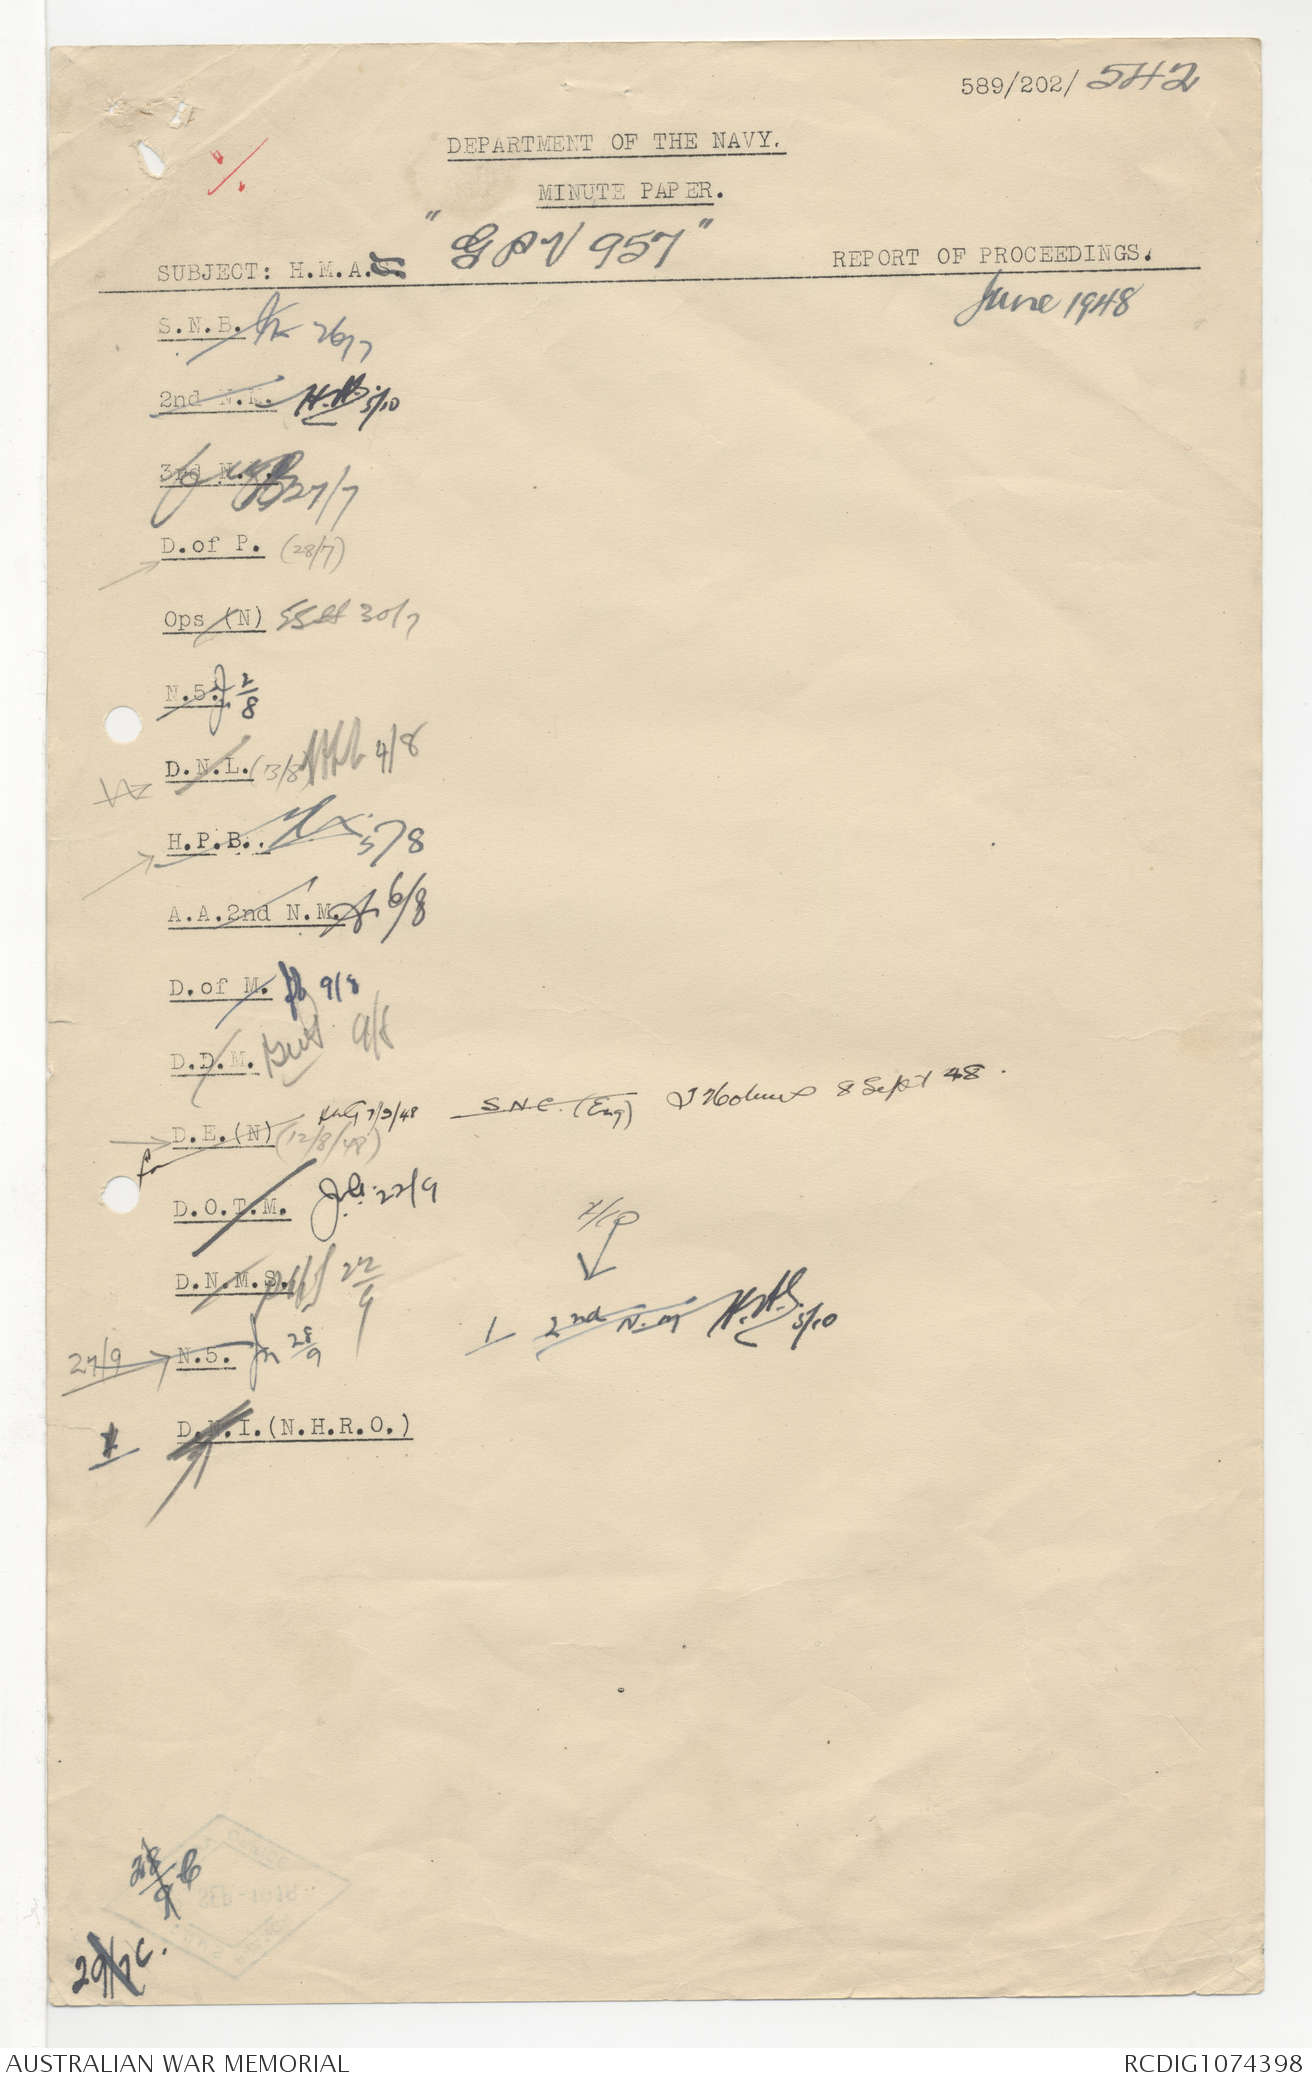 589/202/ 542
DEPARTMENT OF THE NAVY.
MINUTE PAPER.
SUBJECT: H.M.A.S. "GPV 957" REPORT OF PROCEEDINGS.
June 1948
S.N.B. 26/7
2nd N.M. H.M.S. 5/10
3rd N.M. 27/7
D.of P. (28/7)
Ops (N) 30/7
N.5. 2/8
D.N.L. (3/8) 4/8
H.P.B. 5/8
A.A.2nd N.M. 6/8
D.of M. 9/8
D.D.M. 9/8
D.E.(N) 7/9/48 S.N.E. (Eng) J Holmes 8 Sept 48.
(12/8/48)
for
D.O.T.M. 22/9
D.N.M.S. 22/9
1 2nd N.M 5/10
27/9 N.5. 28/9
D.N.I.(N.H.R.O.)
28/9
29/7 C.
AUSTRALIAN WAR MEMORIAL RCDIG1074398